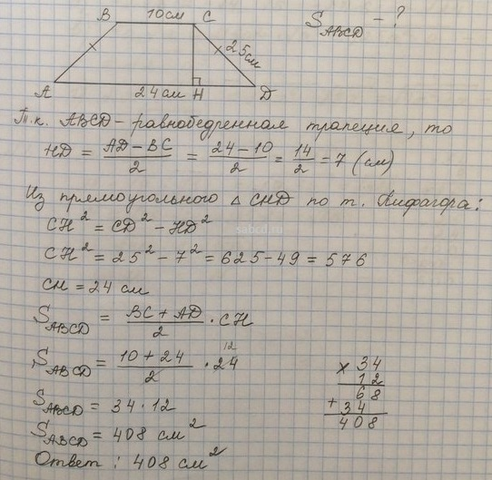 B 10см C S_ABCD - ?
25см
A 24см H D
Т.к. ABCD - равнобедренная трапеция, то
HD = (AD - BC)/2 = (24 - 10)/2 = 14/2 = 7 (см)
Из прямоугольного △ CHD по т. Пифагора:
CH² = CD² - HD²
sabcd.ru
CH² = 25² - 7² = 625 - 49 = 576
CH = 24 см
S_ABCD = (BC + AD)/2 · CH
S_ABCD = (10 + 24)/2 · 24 12
S_ABCD = 34 · 12
S_ABCD = 408 см²
Ответ: 408 см²
× 34
12
68
+ 34
408